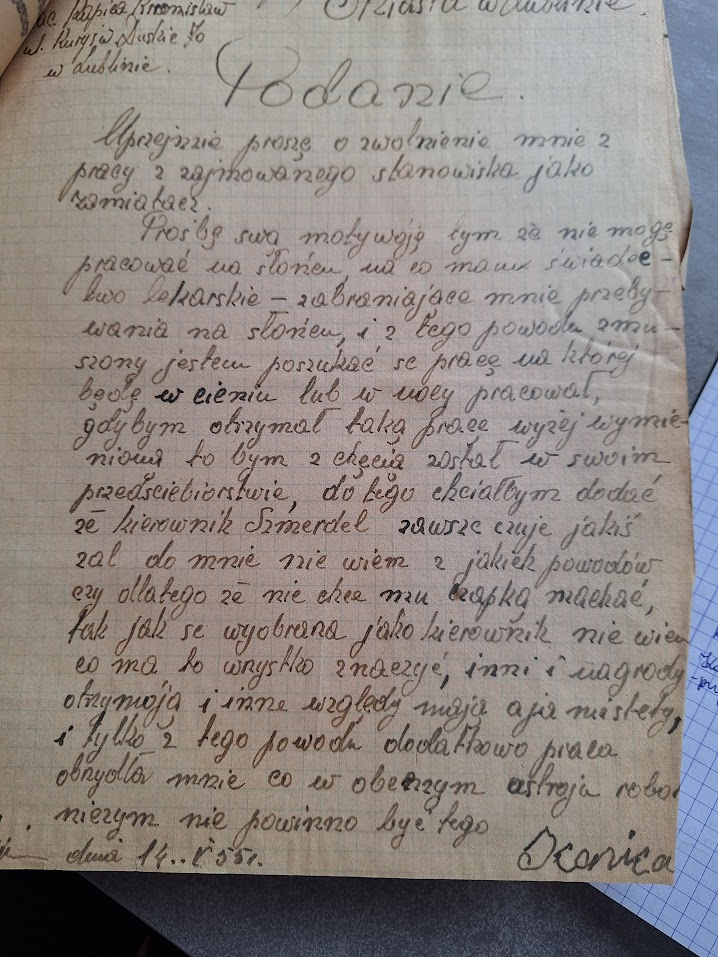 Kronisław
ul. Kurysw Ruskie
w Lublinie.
Miasta w Lublinie.
Podanie.
Uprzejmie proszę o zwolnienie mnie z
pracy z zajmowanego stanowiska jako
zamiatacz.
Prośbę swą motywóję tym że nie mogę
pracować na słońcu, na co mam świadec-
two lekarskie - zabraniające mnie przeby-
wania na słońcu, i z tego powodu zmu-
szony jestem poszukać se pracę na której
będę w cieniu lub w nocy pracował,
gdybym otrzymał taką pracę wyżej wymie-
nioną to bym z chęcią został w swoim
przedsciebiorstwie, do tego chciałbym dodać
że kierownik Szmerdel zawsze czuje jakiś
żal do mnie nie wiem z jakiek powodów
czy dlatego że nie chce mu czapką machać,
tak jak se wyobraża jako kierownik nie wiem
co ma to wszystko znaczyć, inni i nagrody
otrzymoją i inne względy mają a ja niestety,
i tylko z tego powodu dodatkowo praca
obrzydła mnie co w obecnym ustroju robot
niczym nie powinno być tego
dnia 14.. 55r.